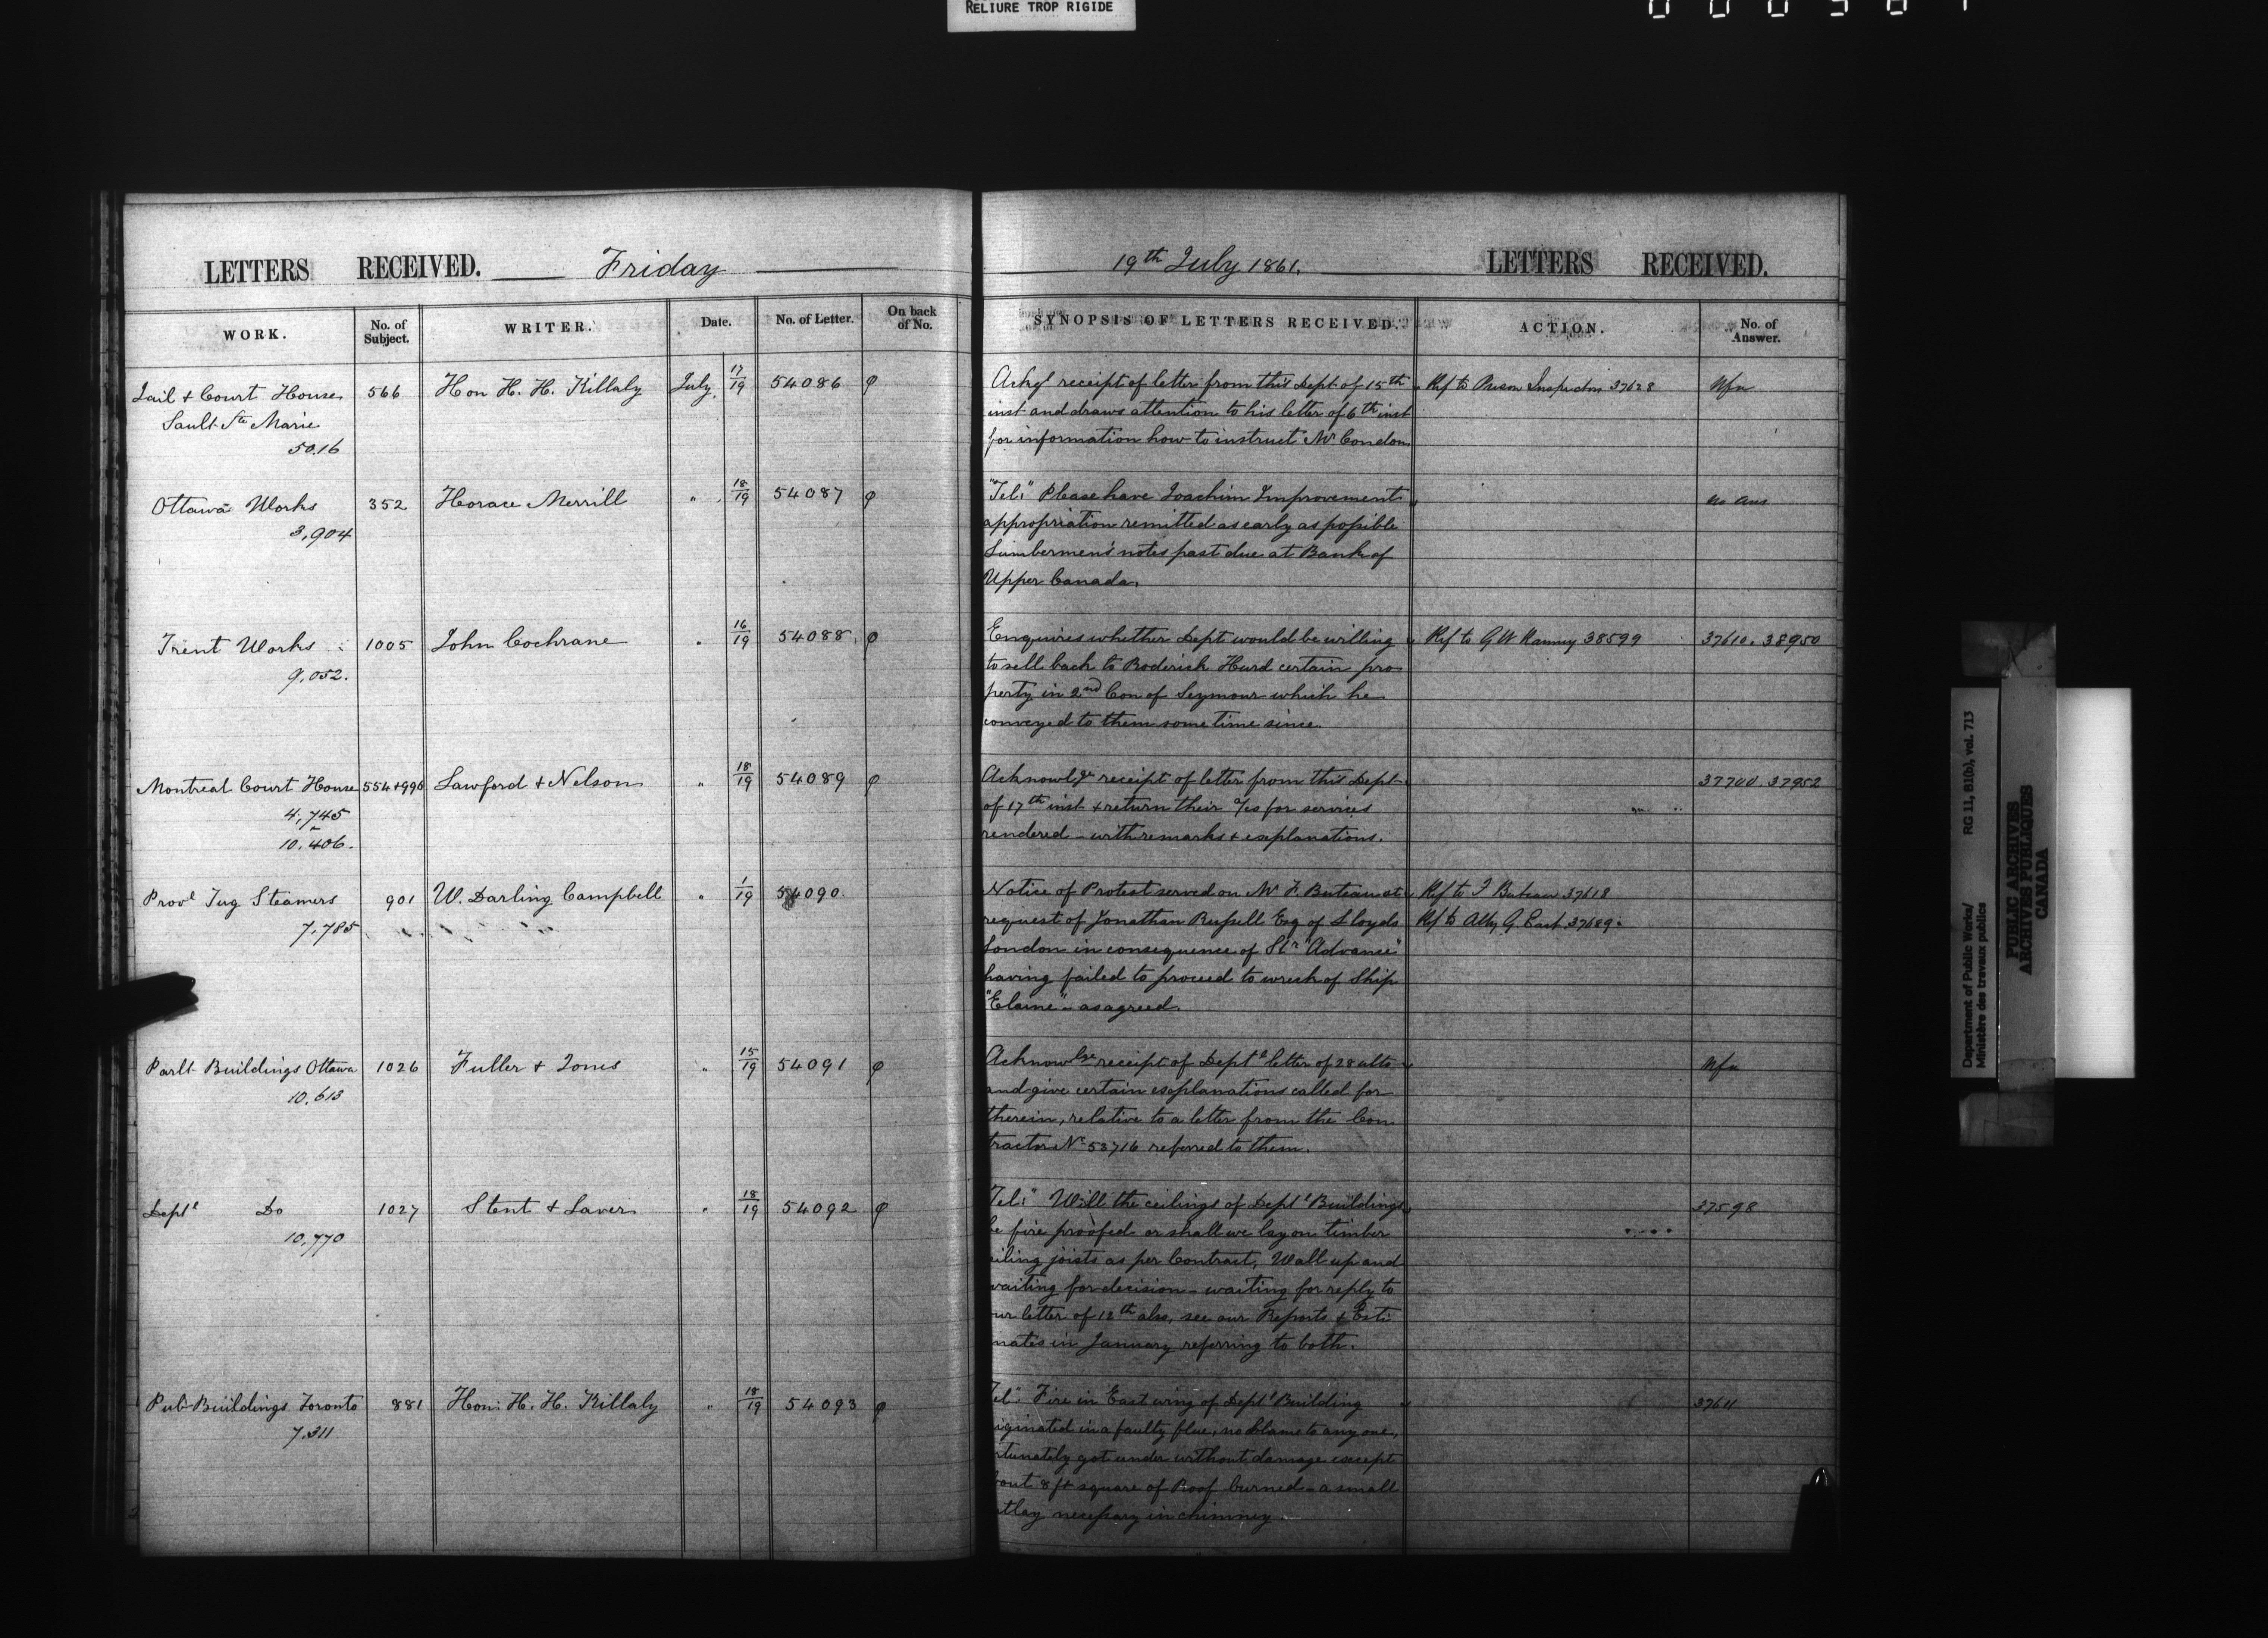 RELIURE TROP RIGIDE
LETTERS RECEIVED. Friday
WORK. No. of Subject. WRITER. Date. No. of Letter. On back of No.
Jail & Court House 566 Hon H. H. Killaly July 17/19 54086 φ
Sault Ste Marie
5016
Ottawa Works 352 Horace Merrill " 18/19 54087 φ
3,904
Trent Works 1005 John Cochrane " 16/19 54088 φ
9,052.
Montreal Court House 554+996 Lawford & Nelson " 18/19 54089 φ
4,745
10,406.
Provl Tug Steamers 901 W. Darling Campbell " 1/19 54090
7,785
Parlt Buildings Ottawa 1026 Fuller & Jones " 15/19 54091 φ
10,613
Deptl Do 1027 Stent & Laver " 18/19 54092 φ
10,770
Pub Buildings Toronto 881 Hon: H. H. Killaly " 18/19 54093 φ
7,311
19th July 1861. LETTERS RECEIVED.
SYNOPSIS OF LETTERS RECEIVED. ACTION. No. of Answer.
Ackg receipt of letter from this Dept of 15th Ref to Prison Inspectors 37628 Nfa
inst and draws attention to his letter of 6th inst
for information how to instruct Mr Condon
"Tel:" Please have Joachim Improvement no ans
appropriation remitted as early as possible
Lumbermen's notes past due at Bank of
Upper Canada.
Enquires whether Dept would be willing Ref to G W Ranney 38599 37610. 38950
to sell back to Roderick Hurd certain pro
perty in 2nd Con of Seymour which he
conveyed to them some time since.
Acknowlge receipt of letter from this Dept 37700. 37952
of 17th inst & return their a/cs for services
rendered – with remarks & explanations.
Notice of Protest served on Mr F. Buteau at Ref to F Buteau 37618
request of Jonathan Russell Esq of Lloyds Ref to Atty G East 37689.
London in consequence of Str "Advance"
having failed to proceed to wreck of Ship
"Elaine" – as agreed.
Acknowlge receipt of Deptl letter of 28 ulto Nfa
and give certain explanations called for
therein, relative to a letter from the Con
tractor No 53716 referred to them.
Tel:" Will the ceilings of Deptl Buildings 37598
be fire proofed or shall we lay on timber
ceiling joists as per Contract, Wall up and
waiting for decision – waiting for reply to
our letter of 12th also, see our Reports & Esti:
mates in January referring to both.
Tel:" Fire in East wing of Deptl Building 37611
originated in a faulty flue, no blame to any one,
fortunately got under without damage except
about 8 ft square of Roof burned – a small
outlay necessary in chimney.
Department of Public Works/ RG 11, B1(b), vol. 713
Ministère des travaux publics
PUBLIC ARCHIVES
ARCHIVES PUBLIQUES
CANADA